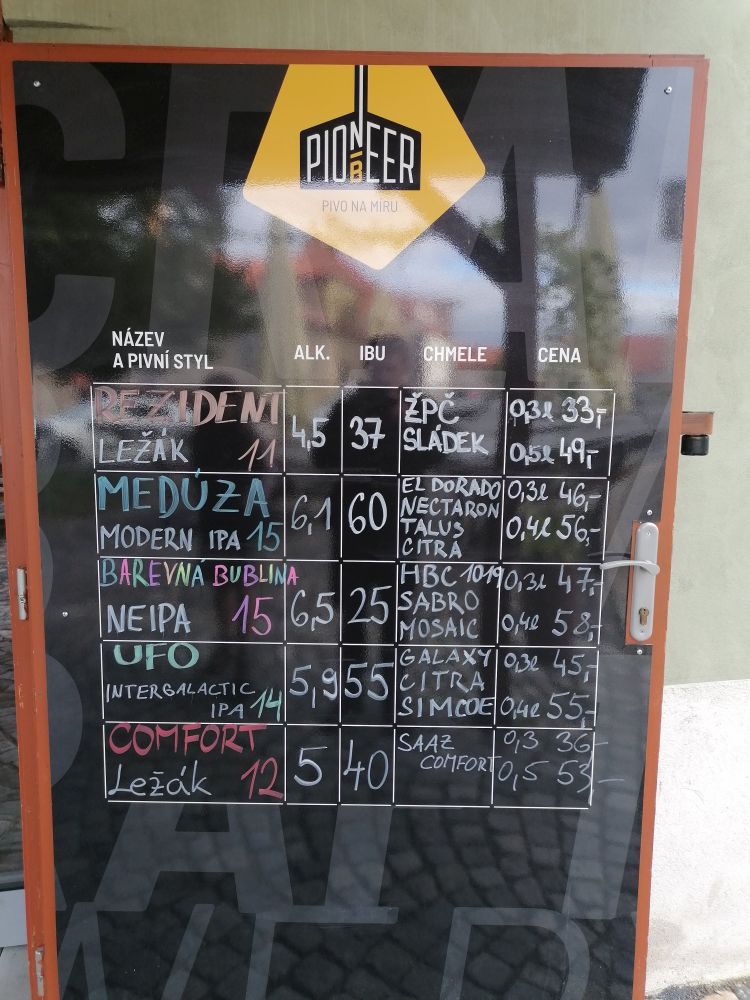 PIONEER
B
PIVO NA MÍRU
NÁZEV
A PIVNÍ STYL
ALK.
IBU
CHMELE
CENA
REZIDENT
LEŽÁK 11
4,5
37
ŽPČ
SLÁDEK
0,3l 33,-
0,5l 49,-
MEDÚZA
MODERN IPA 15
6,1
60
EL DORADO
NECTARON
TALUS
CITRA
0,3l 46,-
0,4l 56,-
BAREVNÁ BUBLINA
NEIPA 15
6,5
25
HBC 1019
SABRO
MOSAIC
0,3l 47,-
0,4l 58,-
UFO
INTERGALACTIC
IPA 14
5,9
55
GALAXY
CITRA
SIMCOE
0,3l 45,-
0,4l 55,-
COMFORT
Ležák 12
5
40
SAAZ
COMFORT
0,3 36,-
0,5 53,-